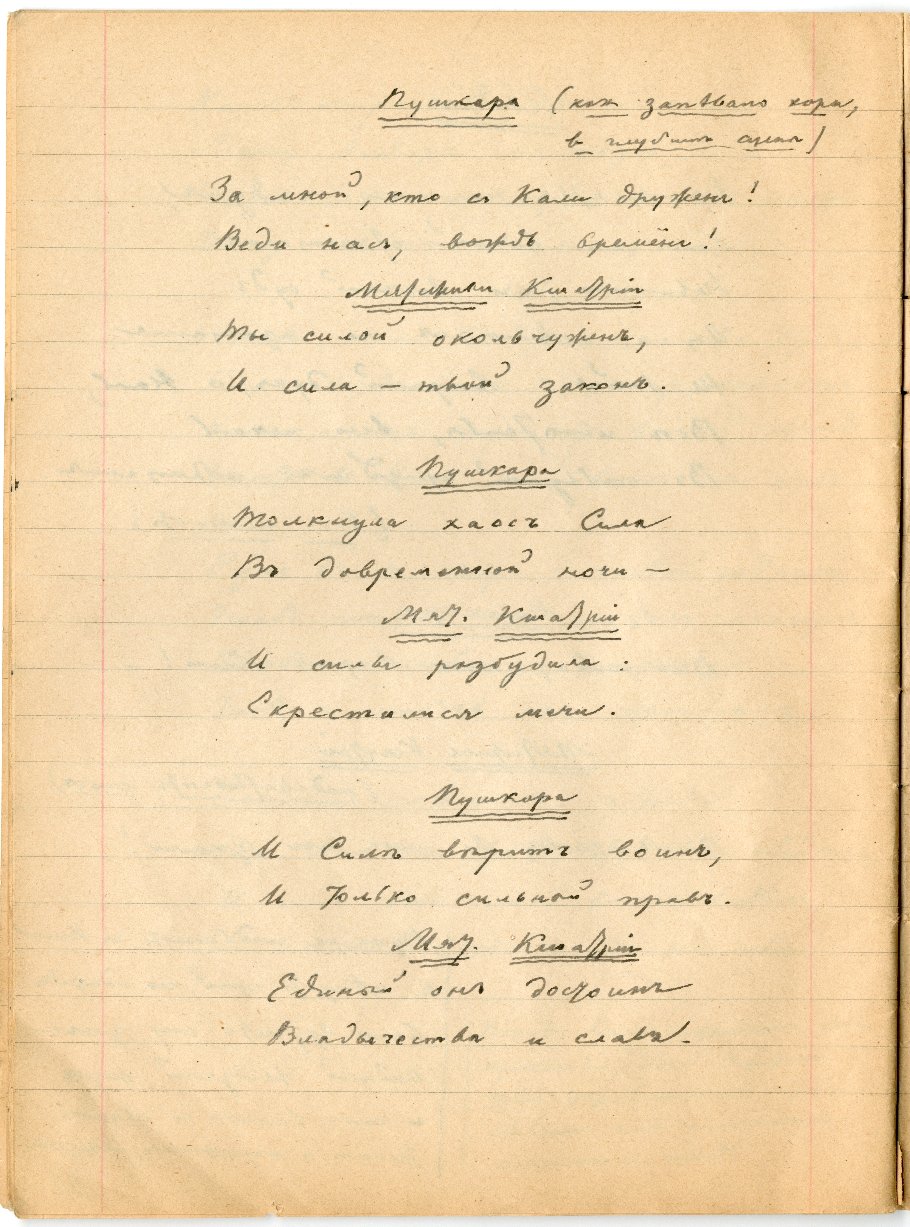 Пушкара (как запѣвало хора,
в глубинѣ сцены)
За мной, кто съ Кали друженъ!
Веди насъ, вождь времёнъ!
Мятежные Кшатріи
Ты силой окольчуженъ,
И сила – твой законъ.
Пушкара
Толкнула хаосъ Сила
Въ довременной ночи –
Мят. Кшатріи
И силы разбудила:
Скрестилися мечи.
Пушкара
И Силѣ вѣритъ воинъ,
И только сильной правъ.
Мят. Кшатріи
Единый онъ достоинъ
Владычества и славы.